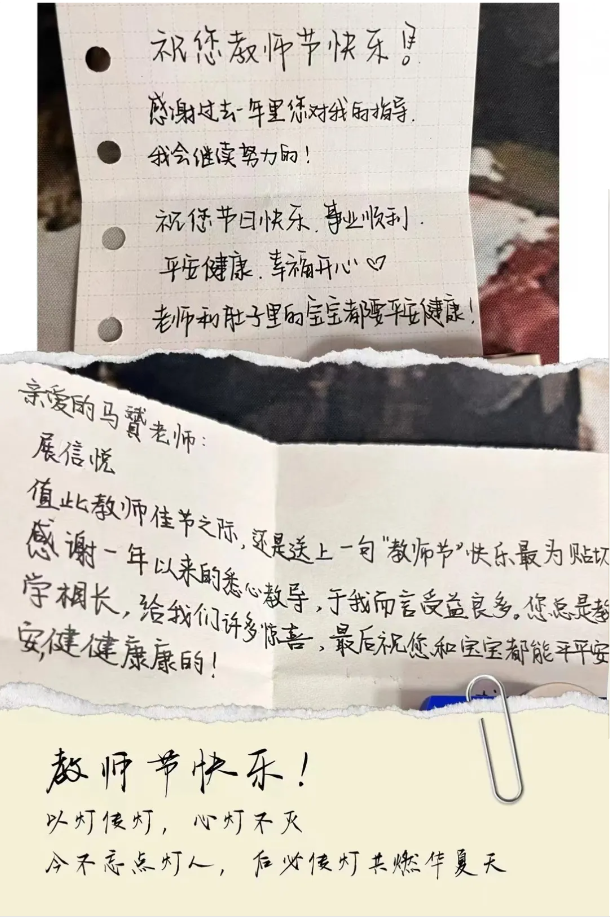 祝您教师节快乐!
感谢过去一年里您对我的指导.
我会继续努力的!
祝您节日快乐.事业顺利.
平安健康.幸福开心♡
老师和肚子里的宝宝都要平安健康!
亲爱的马赟老师:
展信悦
值此教师佳节之际,还是送上一句"教师节"快乐最为贴切
感谢一年以来的悉心教导,于我而言受益良多。您总是教
学相长,给我们许多惊喜,最后祝您和宝宝都能平平安
安,健健康康的!
教师节快乐!
以灯传灯,心灯不灭
今不忘点灯人,后必传灯共燃华夏天